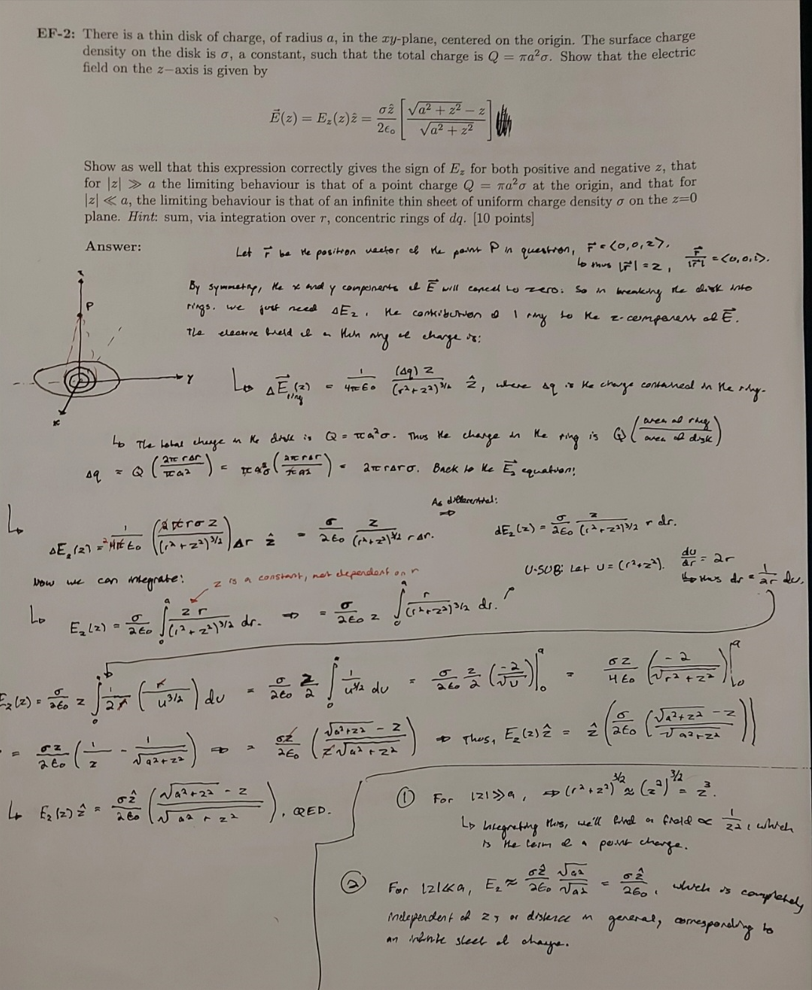 EF-2: There is a thin disk of charge, of radius a, in the xy-plane, centered on the origin. The surface charge
density on the disk is σ, a constant, such that the total charge is Q = πa²σ. Show that the electric
field on the z−axis is given by
E⃗(z) = E_z(z)ẑ = σẑ/2ϵ₀ [ (√(a² + z²) − z) / √(a² + z²) ]
Show as well that this expression correctly gives the sign of E_z for both positive and negative z, that
for |z| ≫ a the limiting behaviour is that of a point charge Q = πa²σ at the origin, and that for
|z| ≪ a, the limiting behaviour is that of an infinite thin sheet of uniform charge density σ on the z=0
plane. Hint: sum, via integration over r, concentric rings of dq. [10 points]
Answer:
Let r⃗ be the position vector of the point P in question, r⃗ = <0,0,z>.
↳ thus |r⃗| = z, r⃗/|r⃗| = <0,0,1>.
By symmetry, the x and y components of E⃗ will cancel to zero. So in breaking the disk into
rings. we just need ΔE_z, the contribution of 1 ring to the z-component of E⃗.
The electric field of a thin ring of charge is:
z
P
Y
x
↳ ΔE⃗_ring(z) = 1/4πε₀ (Δq) z/(r²+z²)^3/2 ẑ, where Δq is the charge contained in the ring.
↳ The total charge in the disk is Q = πa²σ. Thus the charge in the ring is Q (area of ring/area of disk)
Δq = Q (2πrΔr/πa²) = πa²σ (2πrΔr/πa²) = 2πrΔrσ. Back to the E⃗_z equation!
↳ ΔE_z(z) = 1/4πε₀ (2πrσz/(r²+z²)^3/2) Δr ẑ = σ/2ε₀ z/(r²+z²)^3/2 rΔr.
As differential:
⇒ dE_z(z) = σ/2ε₀ z/(r²+z²)^3/2 r dr.
Now we can integrate:
z is a constant, not dependent on r
U-SUB: Let u = (r²+z²). du/dr = 2r
↳ thus dr = 1/2r du.
↳ E_z(z) = σ/2ε₀ ∫₀ᵃ zr/(r²+z²)^3/2 dr. ⇒ = σ/2ε₀ z ∫₀ᵃ r/(r²+z²)^3/2 dr.
E_z(z) = σ/2ε₀ z ∫ 1/2r (r/u^3/2) du = σ/2ε₀ z/2 ∫ 1/u^3/2 du = σ/2ε₀ z/2 (-2/√u)|₀ᵃ = σz/4ε₀ (-2/√(r²+z²))|₀ᵃ
= σz/2ε₀ (1/z - 1/√(a²+z²)) ⇒ = σz/2ε₀ ((√(a²+z²) - z)/(z√(a²+z²))) ⇒ Thus, E_z(z)ẑ = ẑ (σ/2ε₀ ((√(a²+z²) - z)/√(a²+z²)))
↳ E_z(z)ẑ = σẑ/2ε₀ ((√(a²+z²) - z)/√(a²+z²)), QED.
① For |z|≫a, ⇒ (r²+z²)^3/2 ≈ (z²)^3/2 = z³.
↳ Integrating this, we'll find a field ∝ 1/z², which
is the term of a point charge.
② For |z|≪a, E_z ≈ σẑ/2ε₀ √a²/√a² = σẑ/2ε₀, which is completely
independent of z, or distance in general, corresponding to
an infinite sheet of charge.